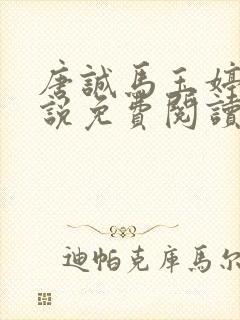 唐誠馬玉婷
說免費閱讀
迪帕克庫馬尔